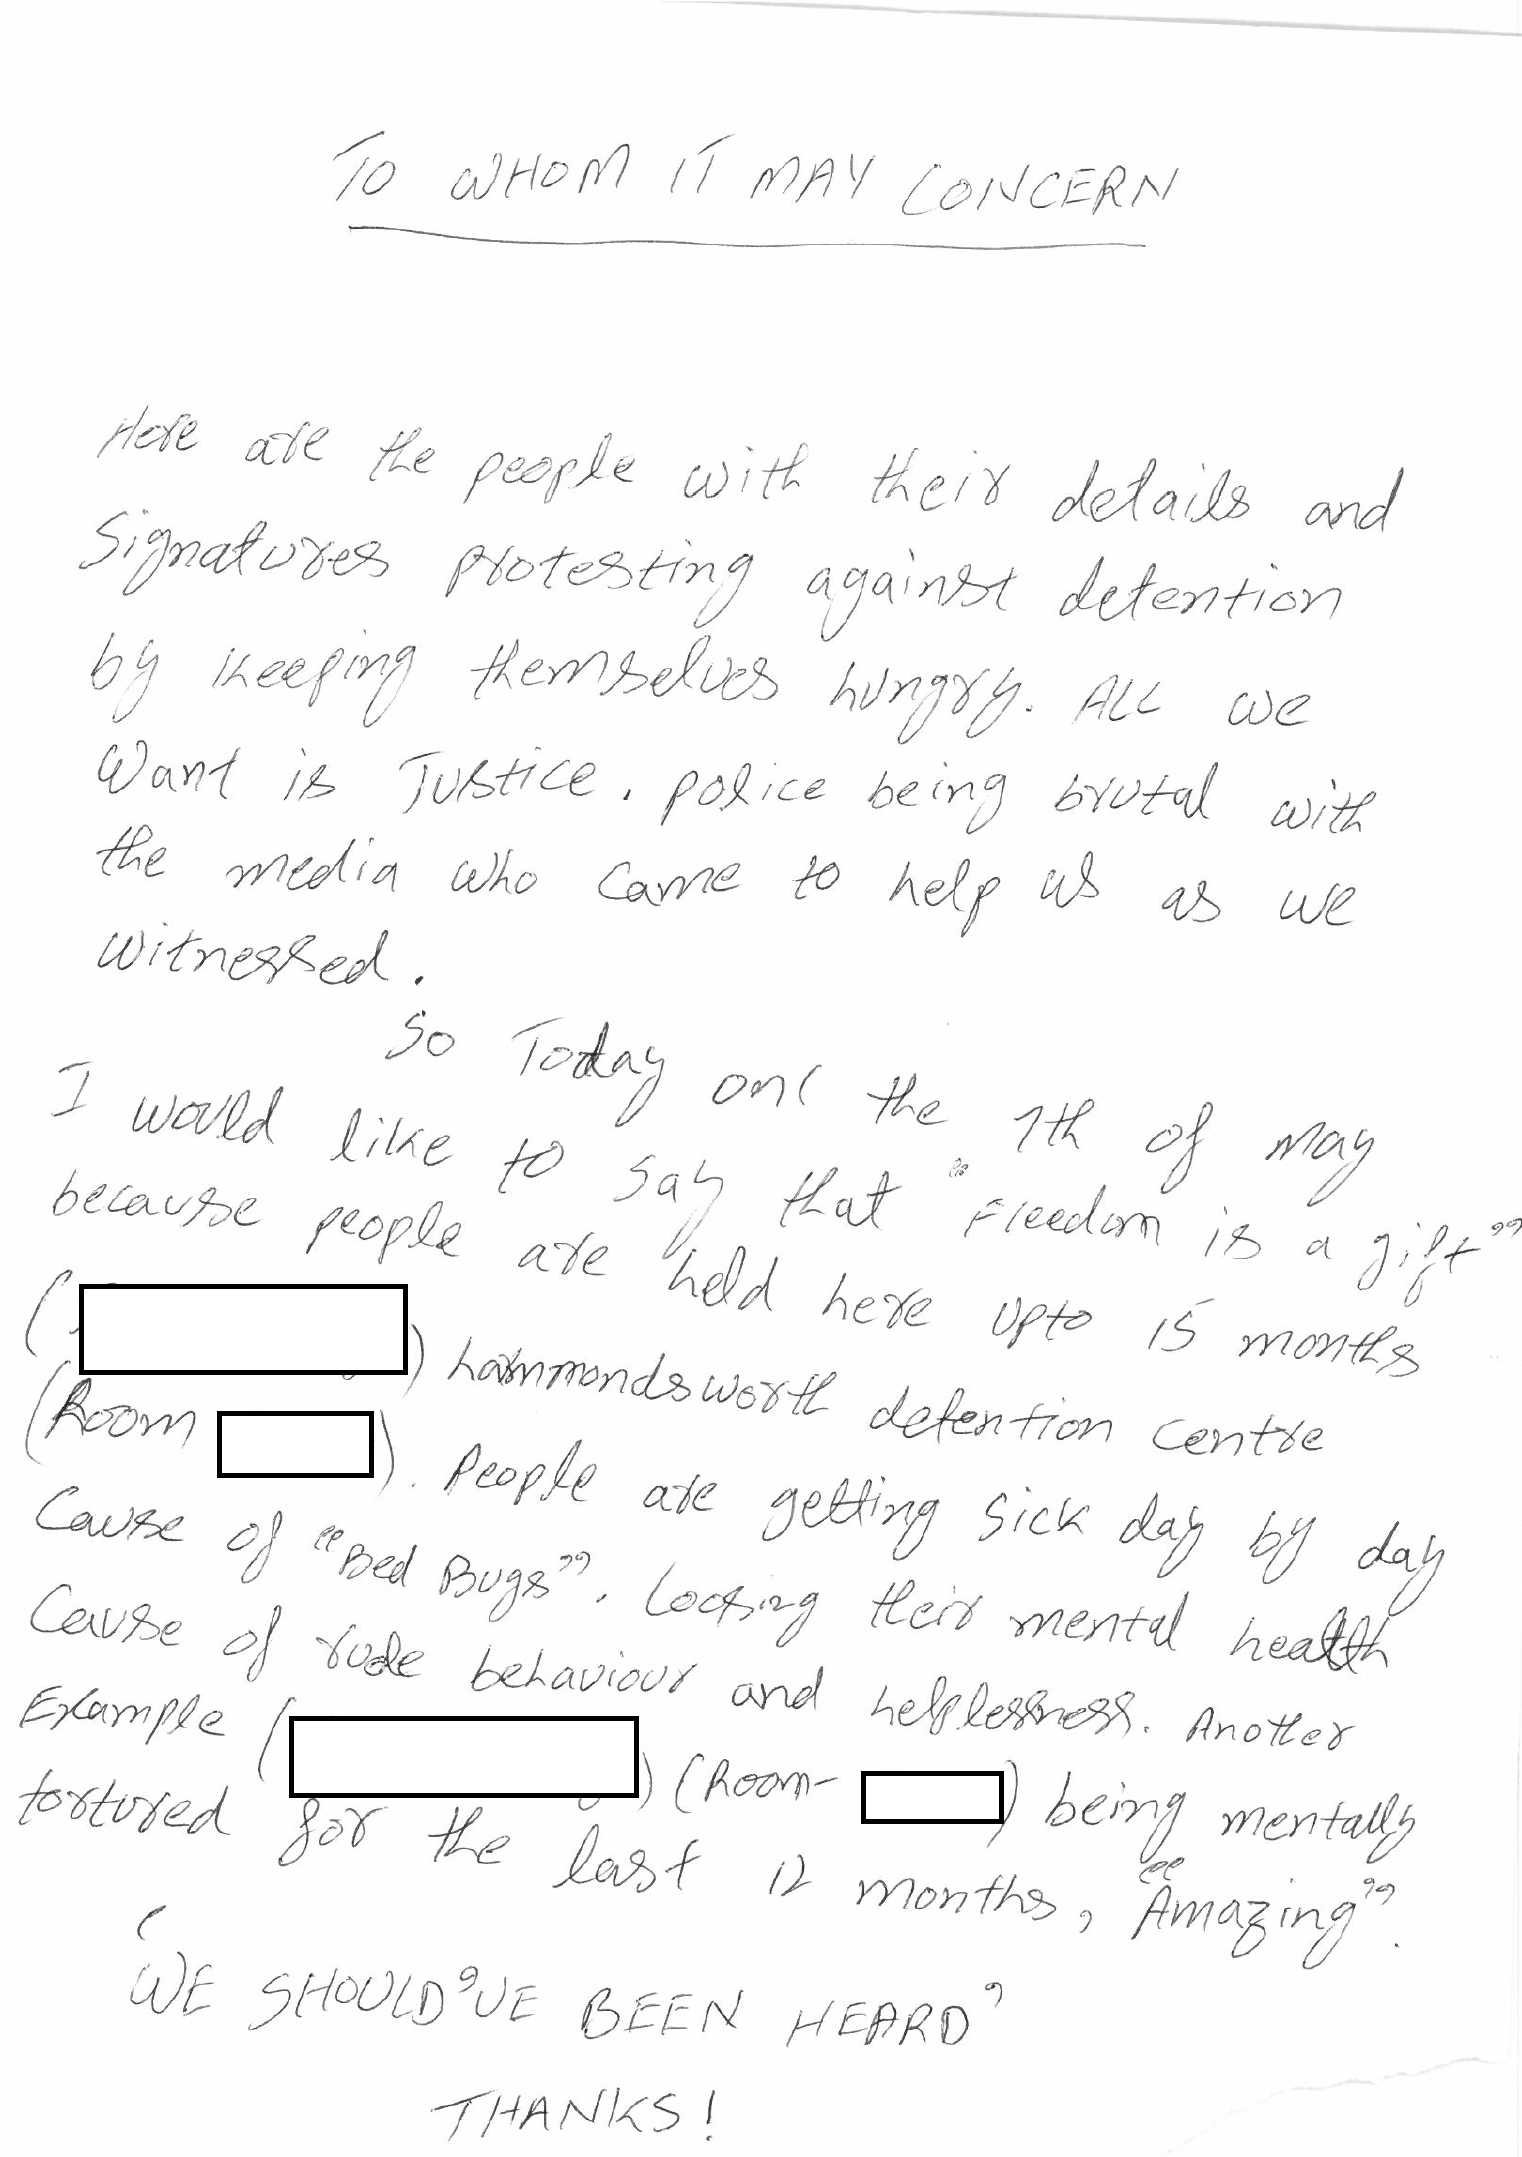 TO WHOM IT MAY CONCERN
Here are the people with their details and
Signatures protesting against detention
by keeping themselves hungry. ALL we
want is Justice. police being brutal with
the media who came to help us as we
witnessed.
So Today on the 7th of may
I would like to say that "Freedom is a gift"
because people are held here upto 15 months
( ) hammondsworth detention centre
(Room ). People are getting sick day by day
Cause of "Bed Bugs". Loosing their mental health
Cause of rude behaviour and helplessness. Another
Example ( ) (Room- ) being mentally
tortured for the last 12 months, "Amazing".
'WE SHOULD'VE BEEN HEARD'
THANKS!